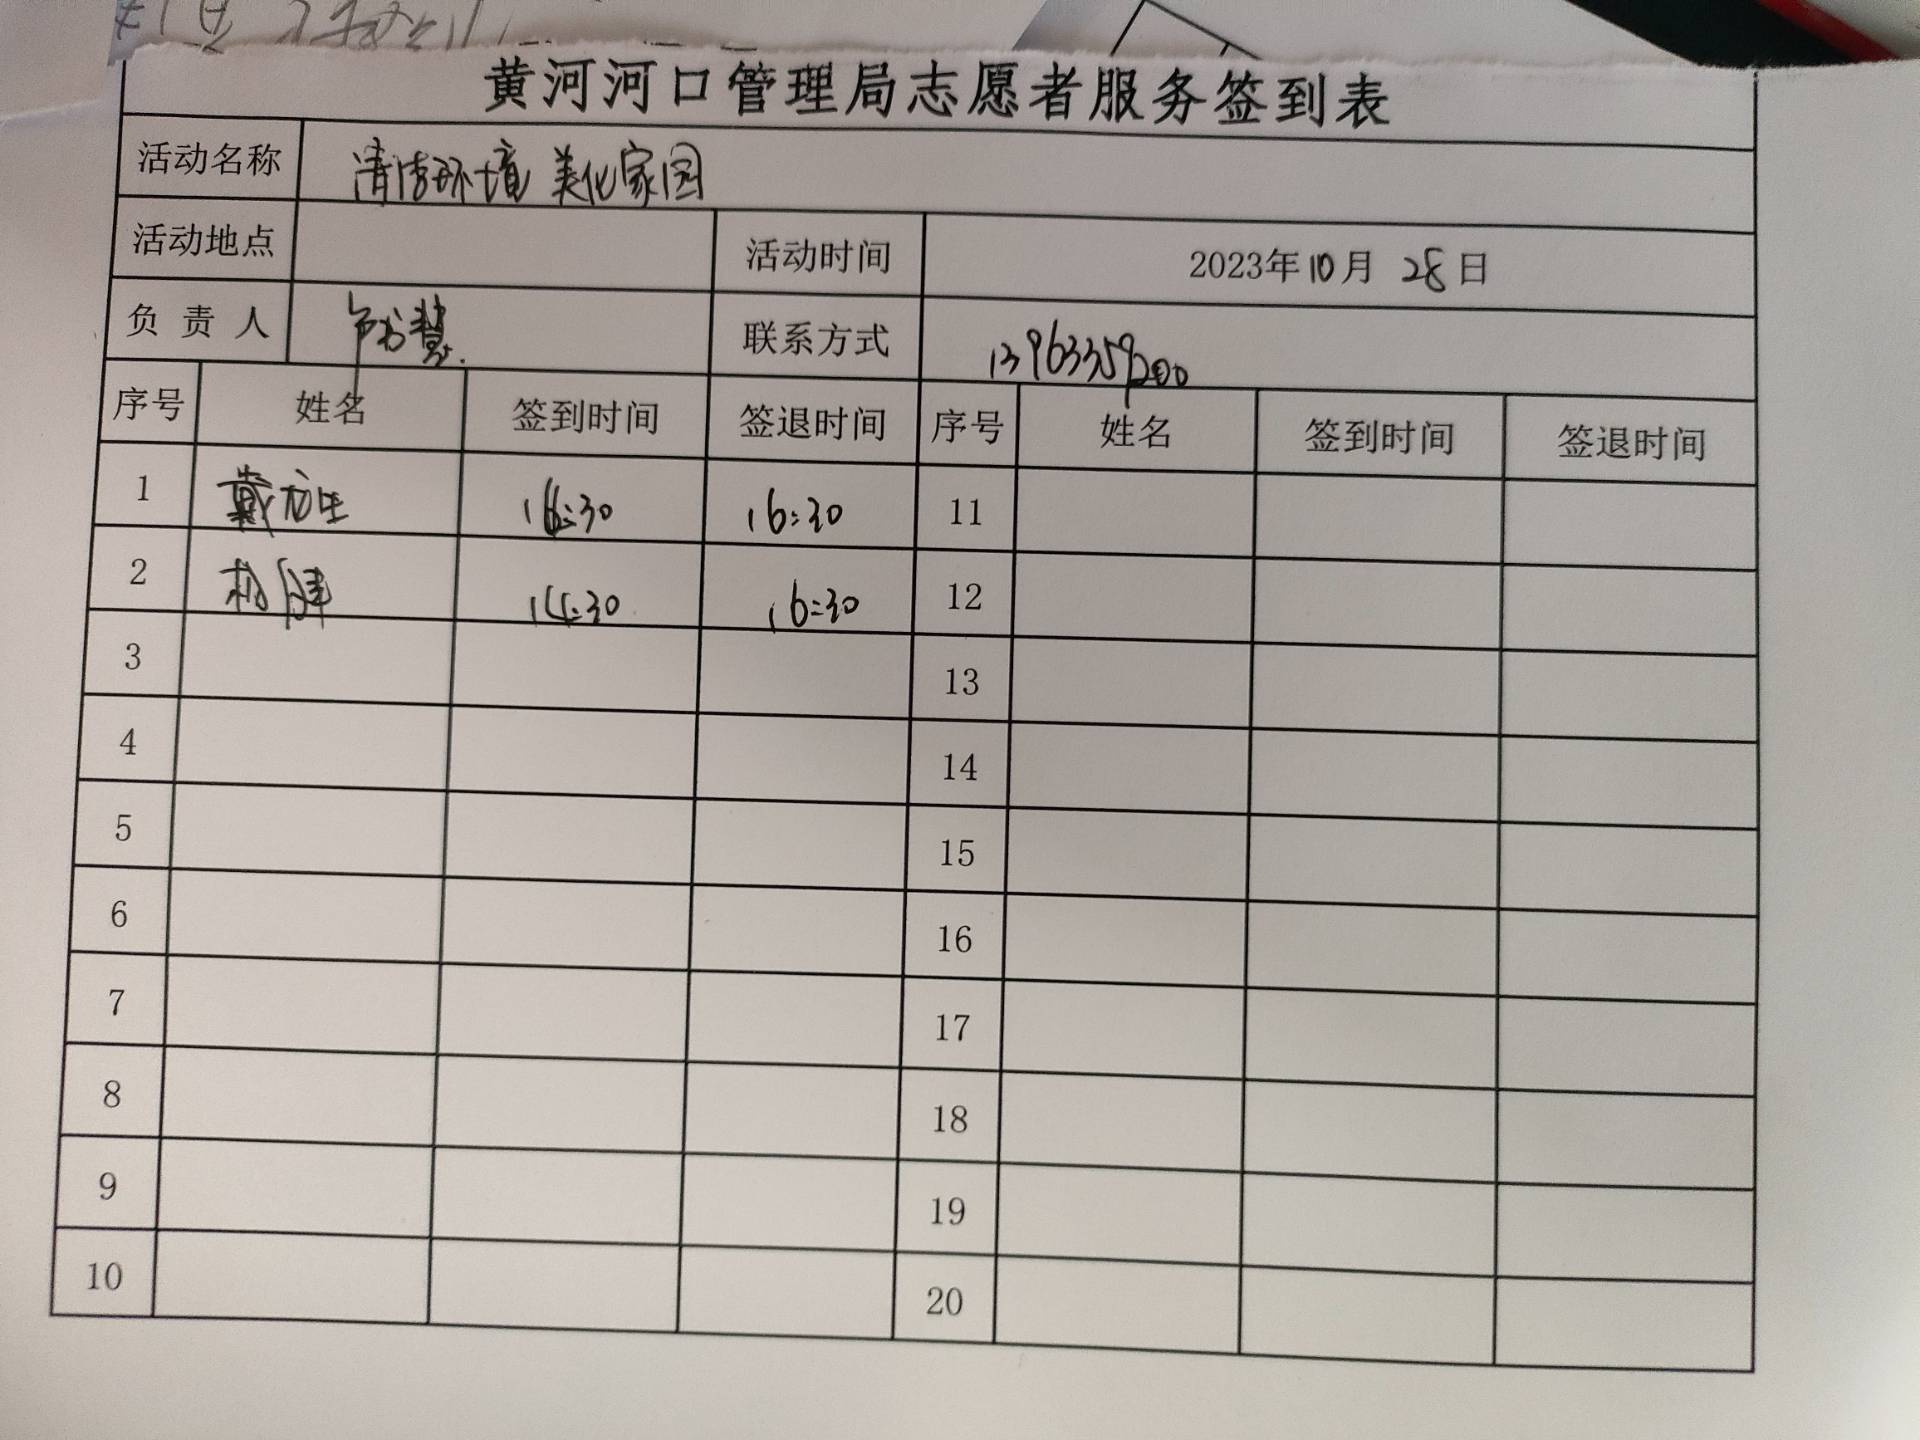 黄河河口管理局志愿者服务签到表
活动名称 清洁环境 美化家园
活动地点 活动时间 2023年10月 28日
负 责 人 联系方式 13963359200
序号 姓名 签到时间 签退时间 序号 姓名 签到时间 签退时间
1 戴 16:30 11
2 杨健 14:30 16:30 12
3 13
4 14
5 15
6 16
7 17
8 18
9 19
10 20